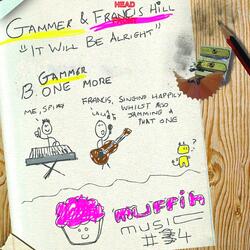 HEAD
GAMMER & FRANCIS HILL
"IT WILL BE ALRIGHT"
B. GAMMER
ONE MORE
FRANCIS, SINGING HAPPILY
WHILST ALSO
JAMMING A
THAT ONE
LALALA
muffin
MUSIC